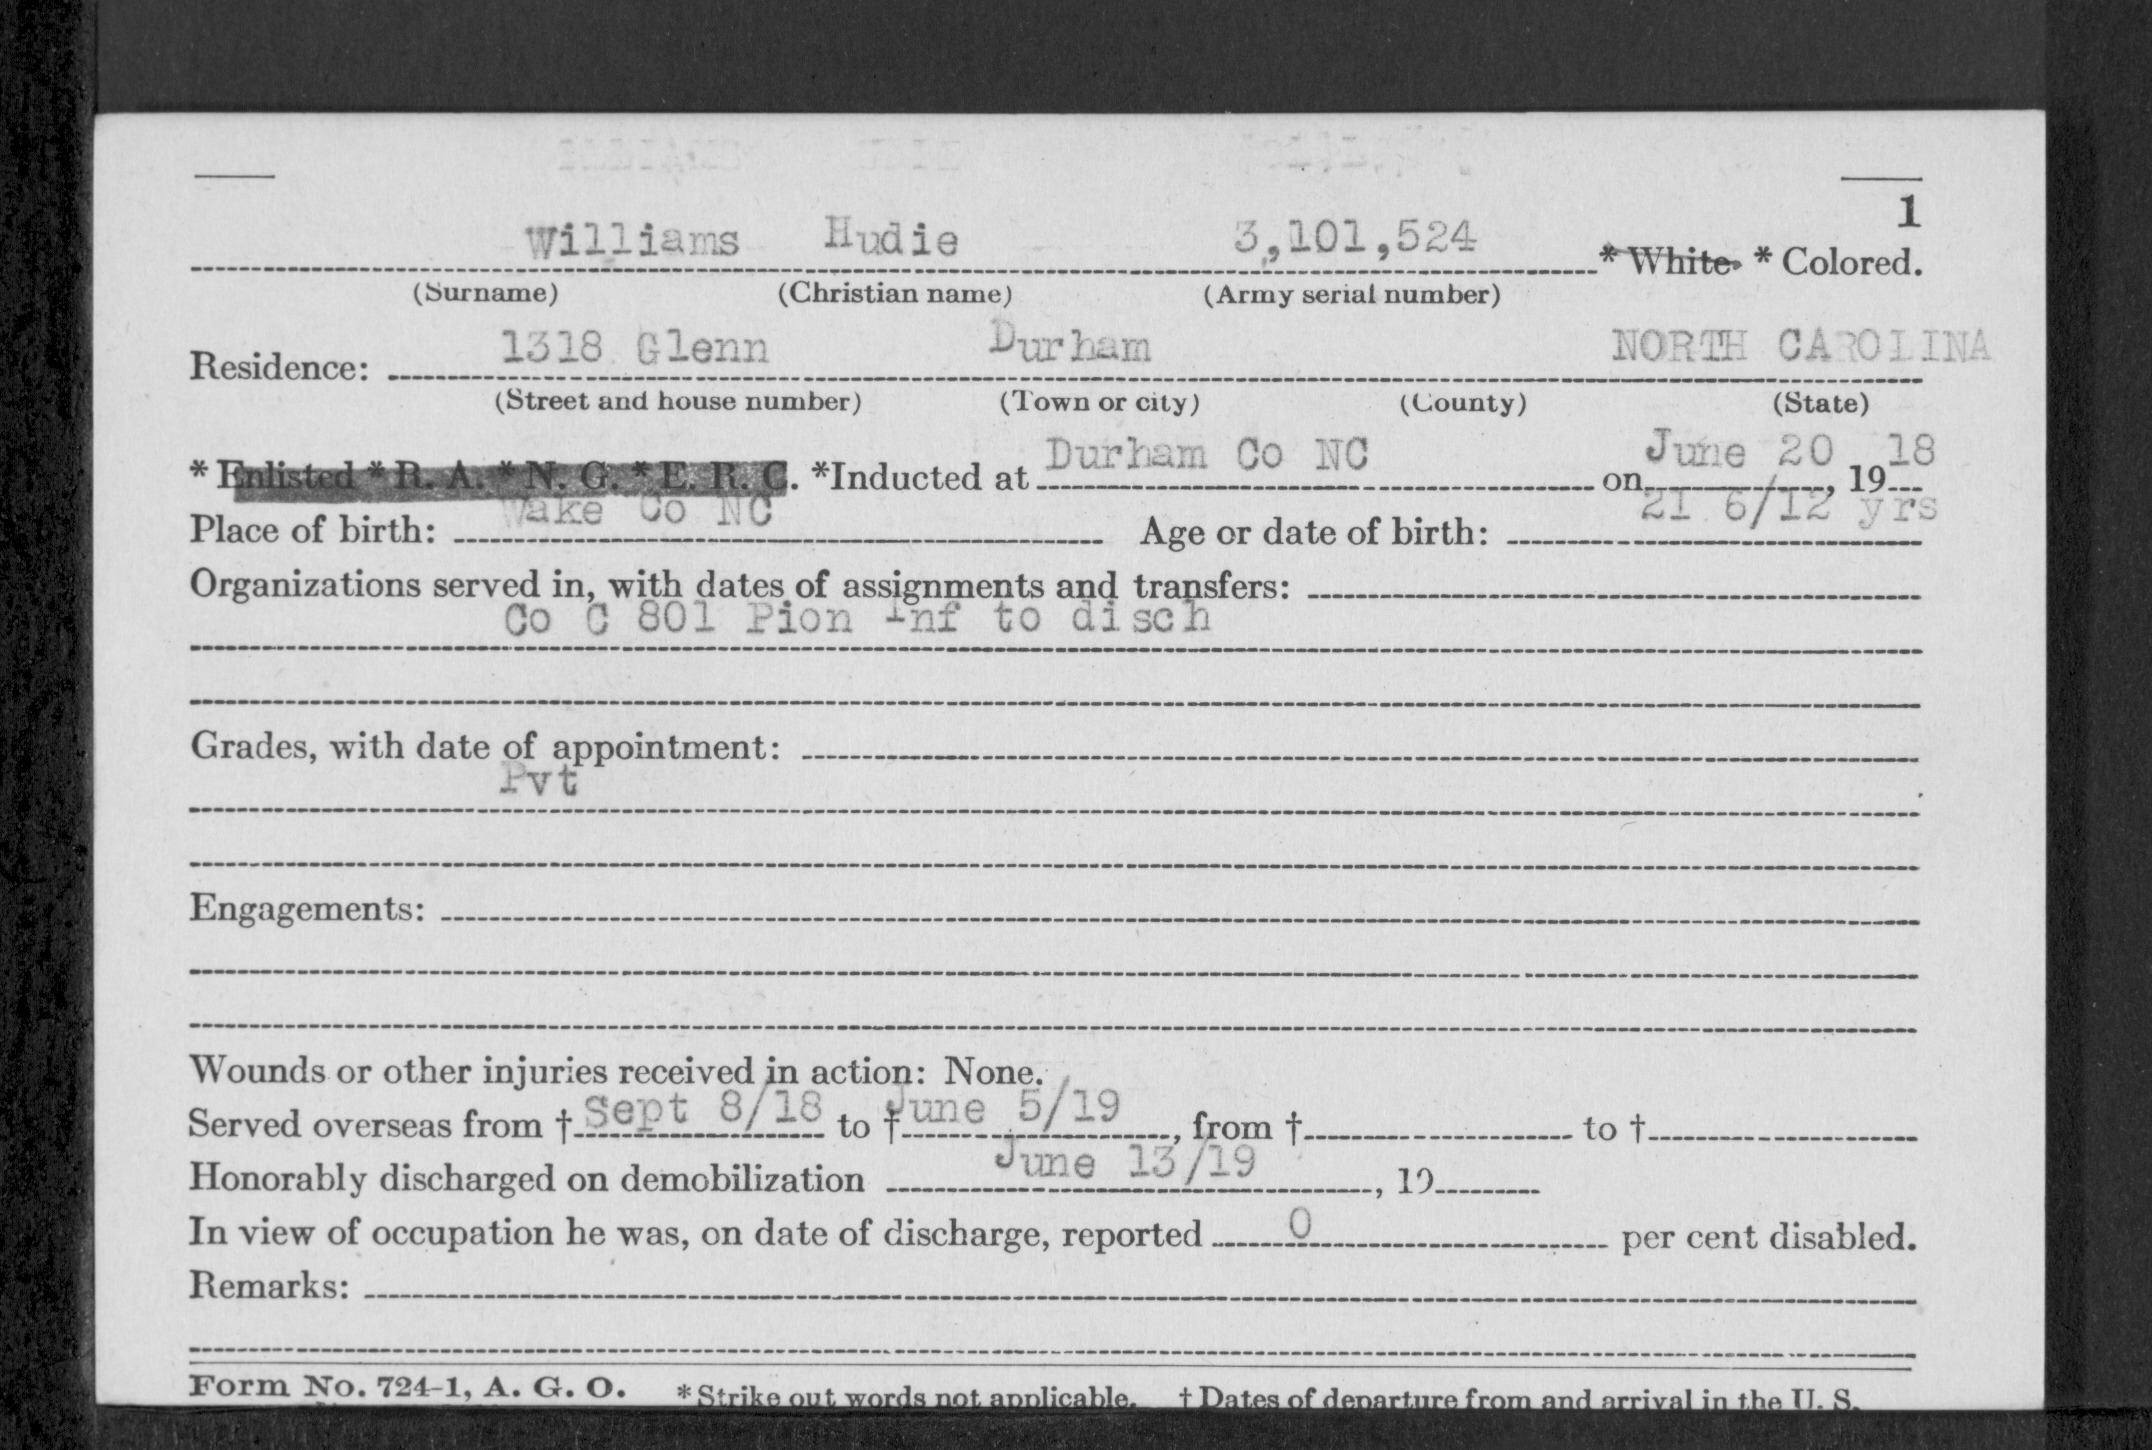 1
Williams Hudie 3,101,524 * White * Colored.
(Surname) (Christian name) (Army serial number)
Residence: 1318 Glenn Durham NORTH CAROLINA
(Street and house number) (Town or city) (County) (State)
* Enlisted * R. A. * N. G. * E. R. C. *Inducted at Durham Co NC on June 20, 1918
Place of birth: Wake Co NC Age or date of birth: 21 6/12 yrs
Organizations served in, with dates of assignments and transfers:
Co C 801 Pion Inf to disch
Grades, with date of appointment:
Pvt
Engagements:
Wounds or other injuries received in action: None.
Served overseas from † Sept 8/18 to † June 5/19, from † to †
Honorably discharged on demobilization June 13/19, 19
In view of occupation he was, on date of discharge, reported 0 per cent disabled.
Remarks:
Form No. 724-1, A. G. O. * Strike out words not applicable. † Dates of departure from and arrival in the U. S.